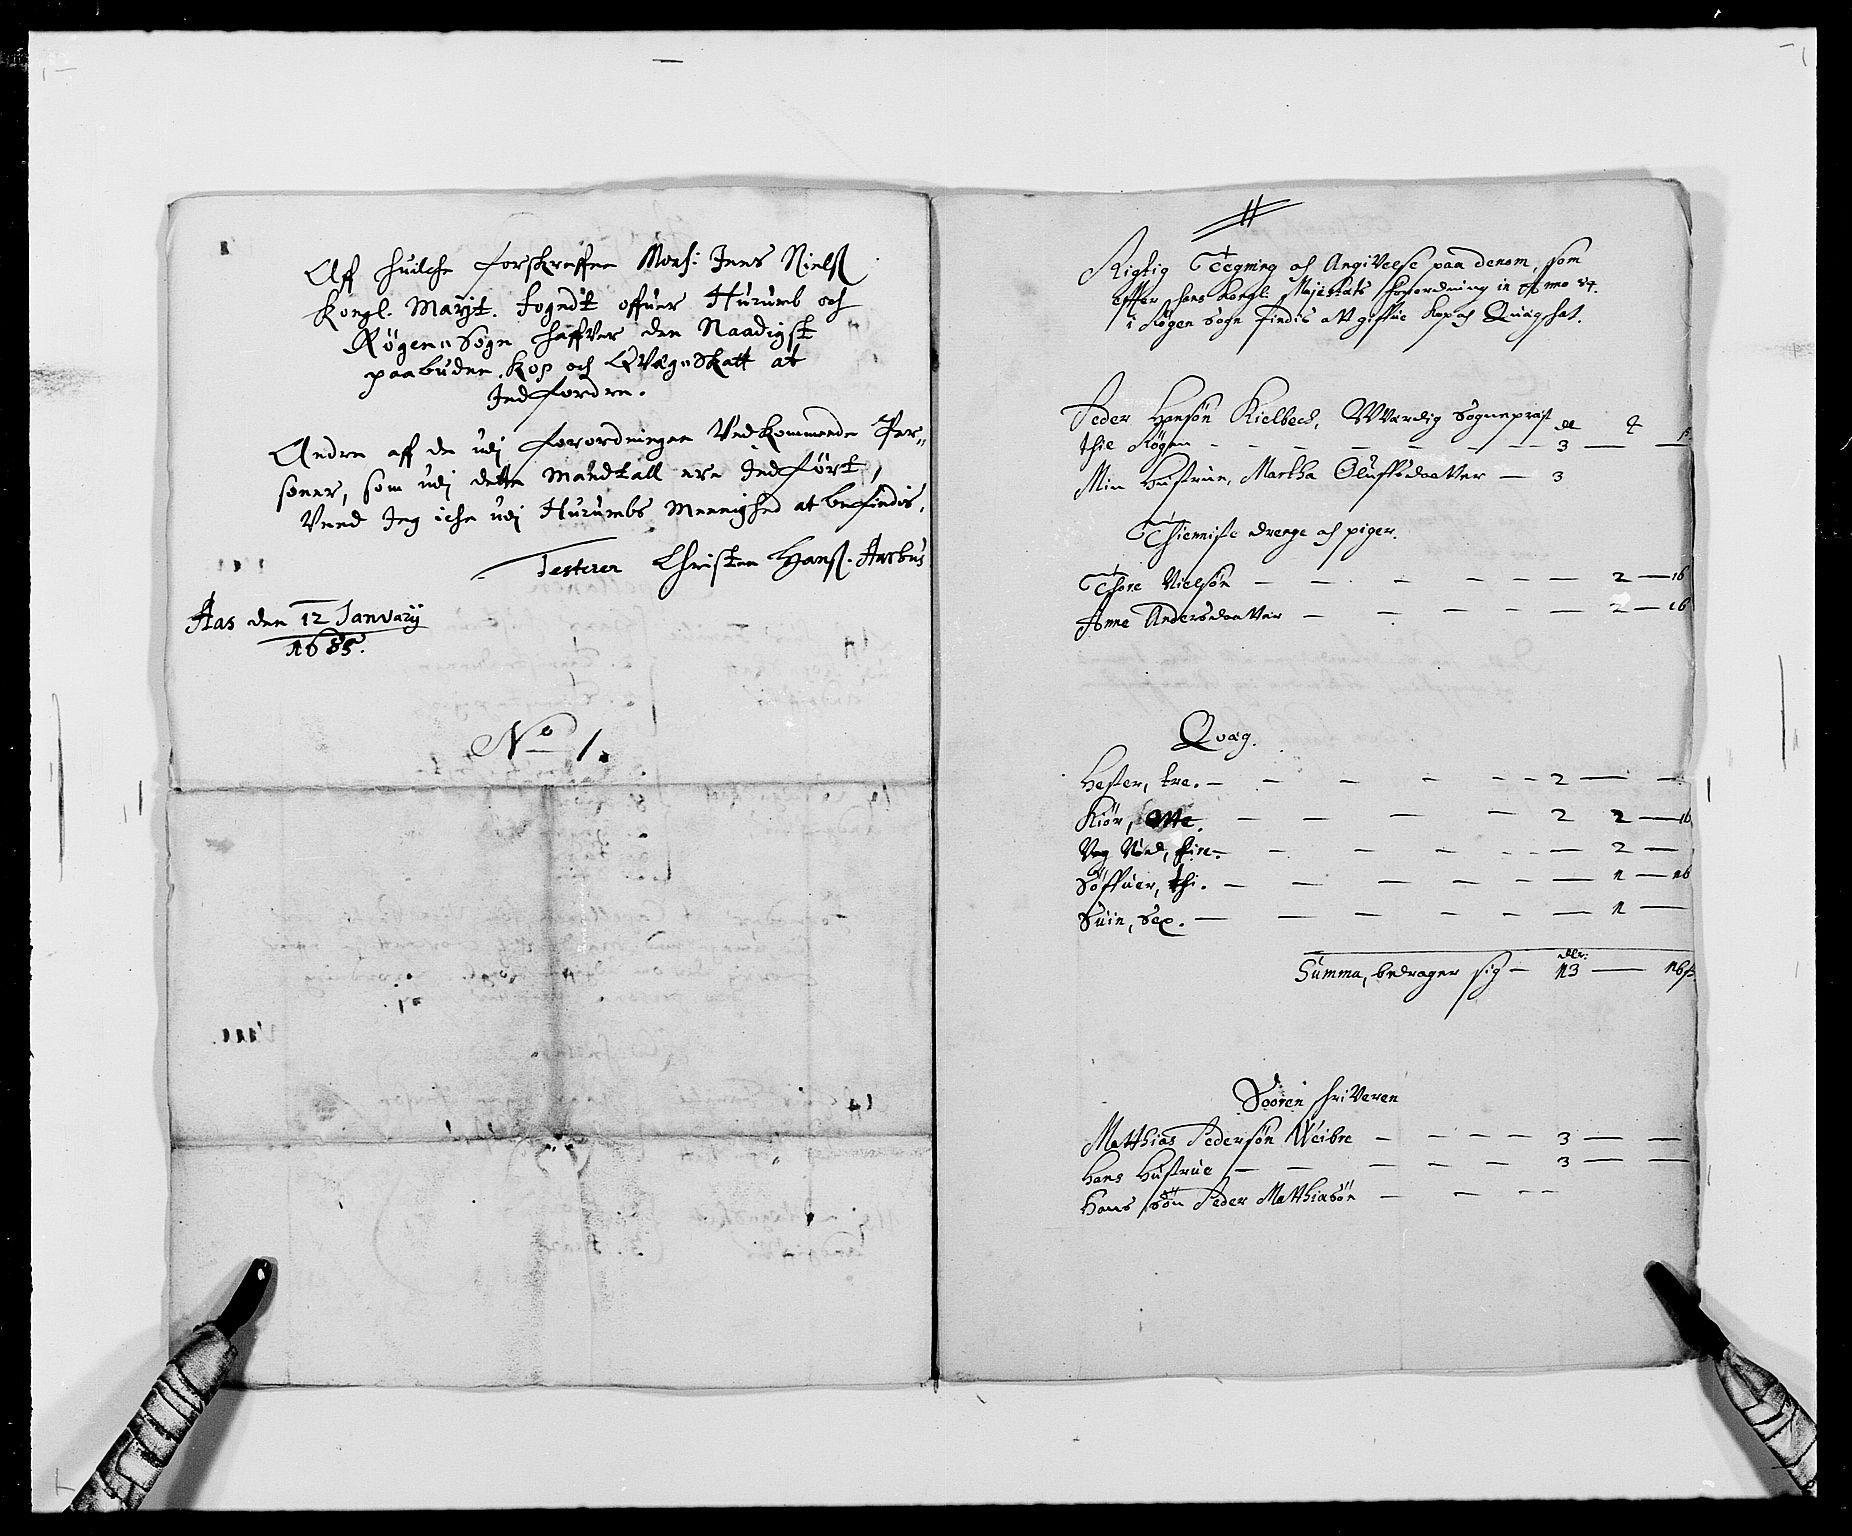 Aff huilche forskreffne Mons: Jens Nielß
Kongl. Mayt. Fogedt offuer Hurumb och
Røgen Sogn haffver den Naadigst
paabudne Kop och Qvæg Skatt at
Indfordre.
Andre aff de udj forordningen Vedkommende Per-
soner, som udj dette Mandtall ere Indført,
Veed Jeg iche udj Hurumbs Meenighed at befindis,
Testerer Christen Hanß. Aarhus
Aas den 12 January
1685.
No 1.
Rigtig Tegning och Angivelse paa denom, som
effter Hans Kongl. Majestats forordning in Anno 84.
i Røgen Sogn findis att giffue Kop och Quægskat.
Peder Hansøn Kielbech, Wværdig Sogneprest
thil Røgen - - - - 3 — —
Min Hustrue, Martha Olufsdaatter — 3
Thienniste drenge och piger.
Thore Nielsøn - - - - 2 — 16
Anne Andersdaatter - - - 2 — 16
Qvæg.
Hester, tre. - - - - 2 — —
Kiør, otte. - - - - 2 2 — 16
Ung Nød, fire. - - - - 2 —
Søffuer, thi. - - - - 1 — 16
Suin, Sex. - - - - 1 —
Summa, bedrager sig — 13 — 16 ß
Sooren skriVeren
Matthias Pedersøn Weibye - - - - 3 — —
Hans Hustrue - - - - 3 — —
Hans søn Peder Matthiasøn - - -